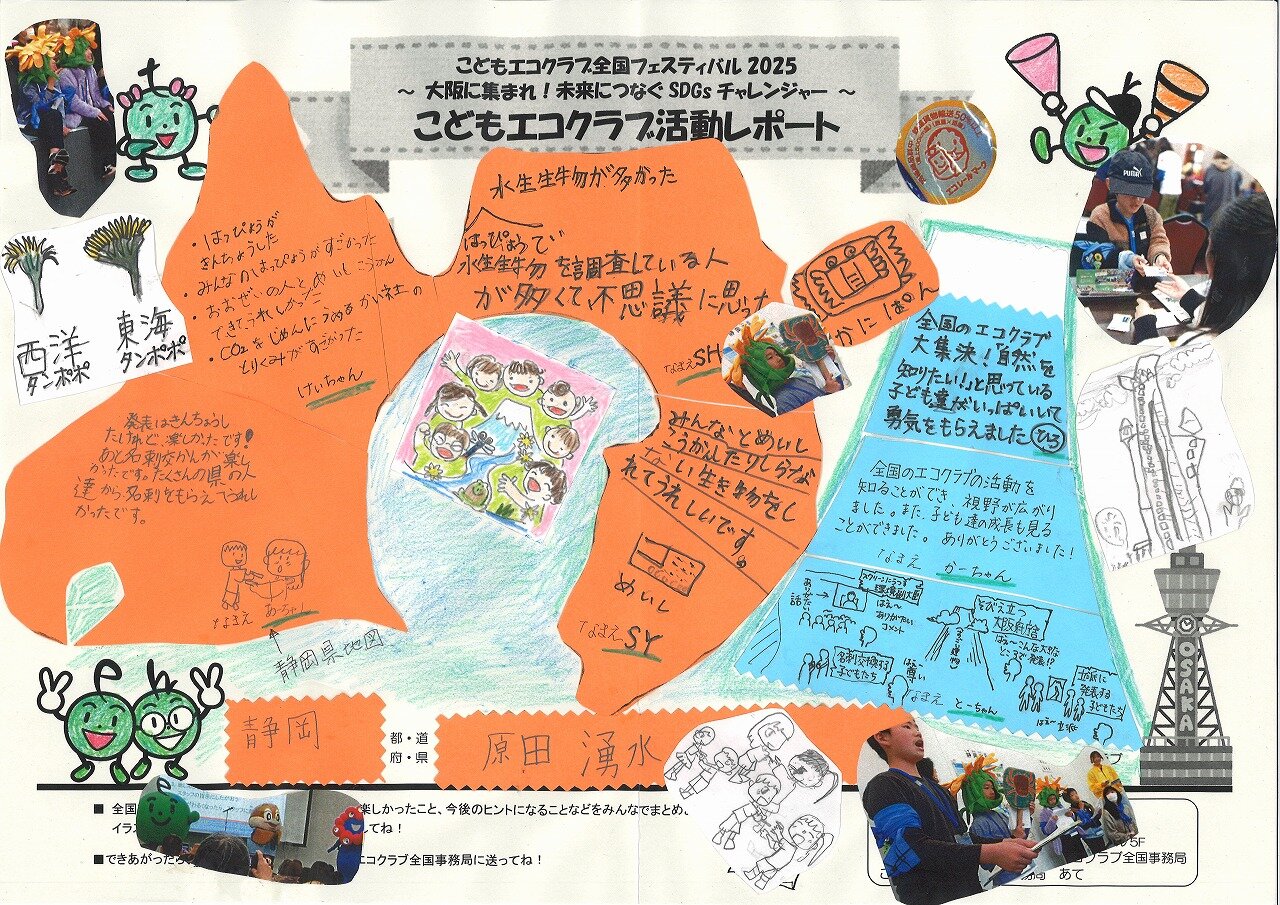 こどもエコクラブ全国フェスティバル 2025
～ 大阪に集まれ！未来につなぐ SDGs チャレンジャー ～
こどもエコクラブ活動レポート
西洋
タンポポ
東海
タンポポ
・はっぴょうが
きんちょうした
・みんなのはっぴょうがすごかった
・おおぜいの人とめいしこうかん
できてうれしかった
・CO2をじめんにうめるかい社の
とりくみがすごかった
けいちゃん
水生生物が多かった
はっぴょうで
水生生物を調査している人
が多くて不思議に思った
なまえSH
エコレールマーク
PUMA
全国のエコクラブ
大集決！「自然を
知りたい!」と思っている
子ども達がいっぱいいて
勇気をもらえました ひろ
発表はきんちょうし
たけれど、楽しかったです!
あと名刺交かんが楽し
かったです。たくさんの県の人
達から名刺をもらえてうれし
かったです。
なまえ あーちゃ
静岡県地図
みんなとめいし
こうかんしたりしらな
ない生き物をし
れてうれしいです。
めいし
なまえSY
全国のエコクラブの活動を
知ることができ、視野が広がり
ました。また、子ども達の成長も見る
ことができました。ありがとうございました！
なまえ かーちゃん
スクリーンにうつる
環境副大臣
ありがたい
話
はぇ～
ありがたい
コメント
そびえ立つ
大阪府庁
はぇ～こんな大きな
ところで発表!?
名刺交換する
子どもたち
はぇ～
尊い
立派に
発表する
子どもたち
はぇ～立派
なまえ とーちゃん
OSAKA
静岡
都・道
府・県
原田 湧水
ブ
■ 全国
楽しかったこと、今後のヒントになることなどをみんなでまとめ、
イラス
してね！
■できあがったら
エコクラブ全国事務局に送ってね！
5F
クラブ全国事務局
あて